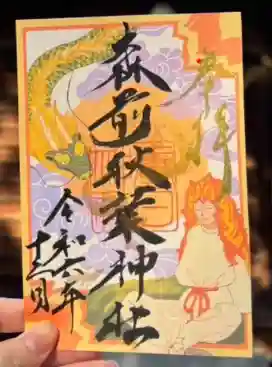 奉拝
森前秋葉神社
令和六年
十二月